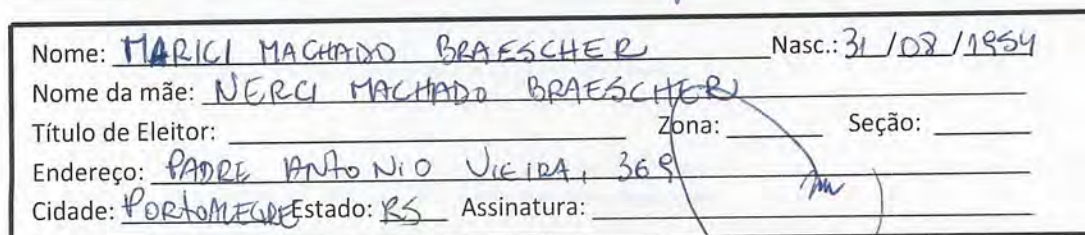 Nome: MARICI MACHADO BRAESCHER Nasc.: 31/08/1954
Nome da mãe: NERCI MACHADO BRAESCHER
Título de Eleitor: Zona: Seção:
Endereço: PADRE ANTONIO VIEIRA, 369
Cidade: PORTO ALEGRE Estado: RS Assinatura: